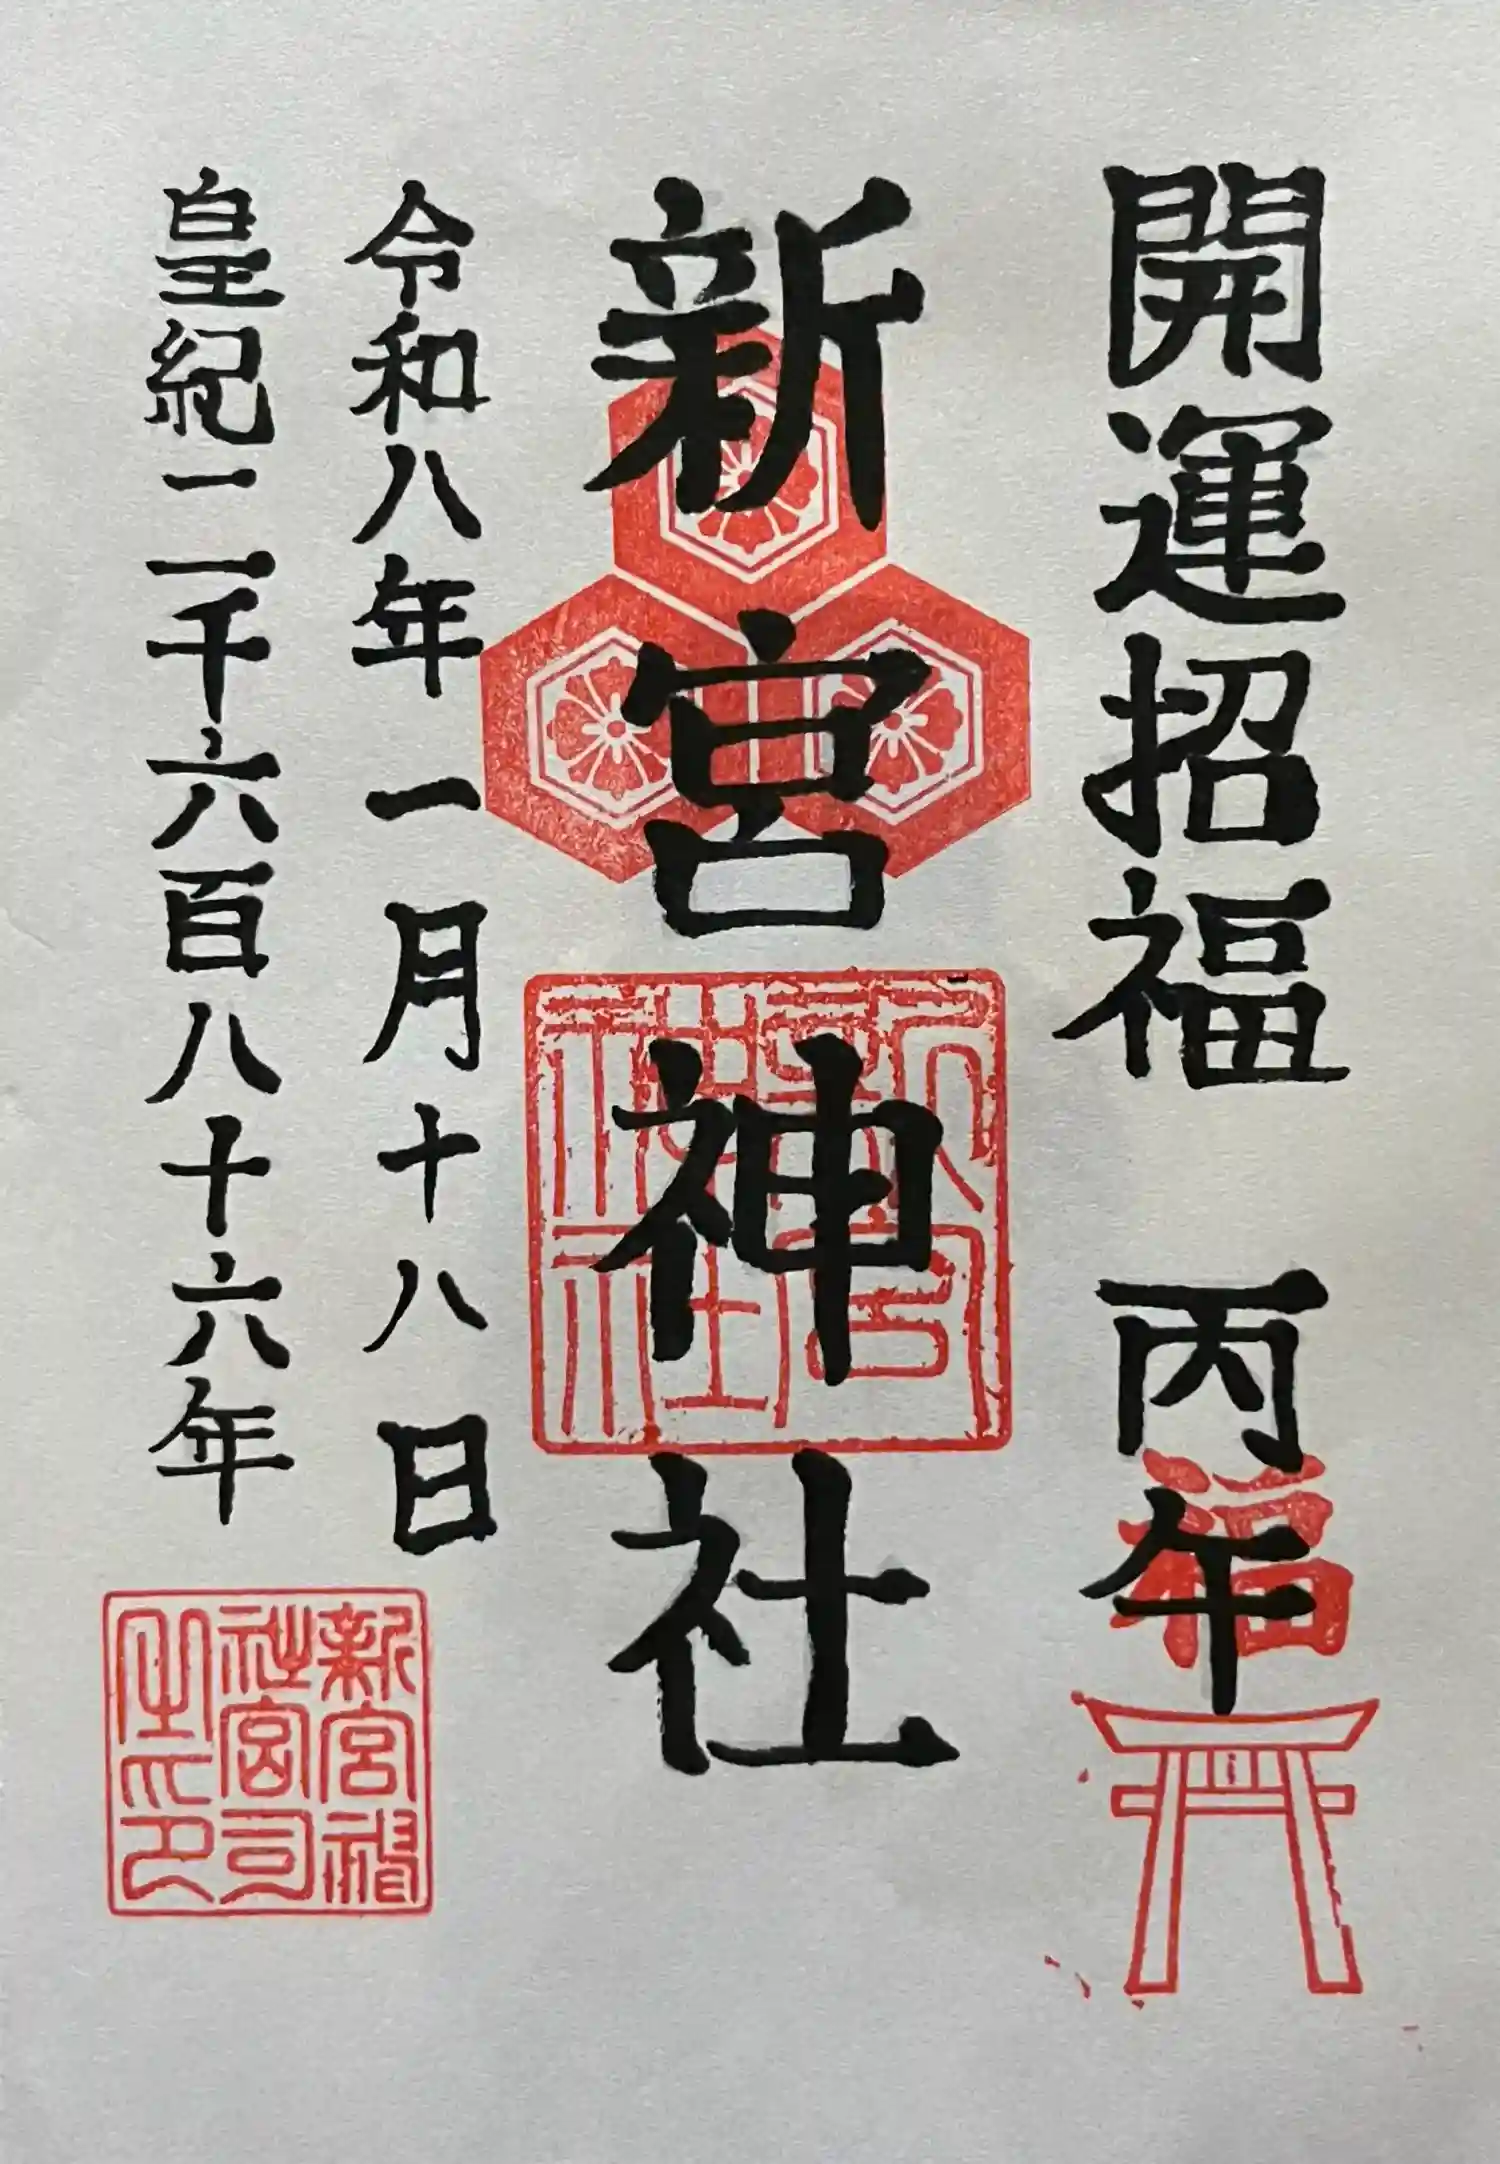 開運招福 丙午
福
新宮神社
新宮神社
令和八年一月十八日
皇紀二千六百八十六年
新宮神
社宮司
之印